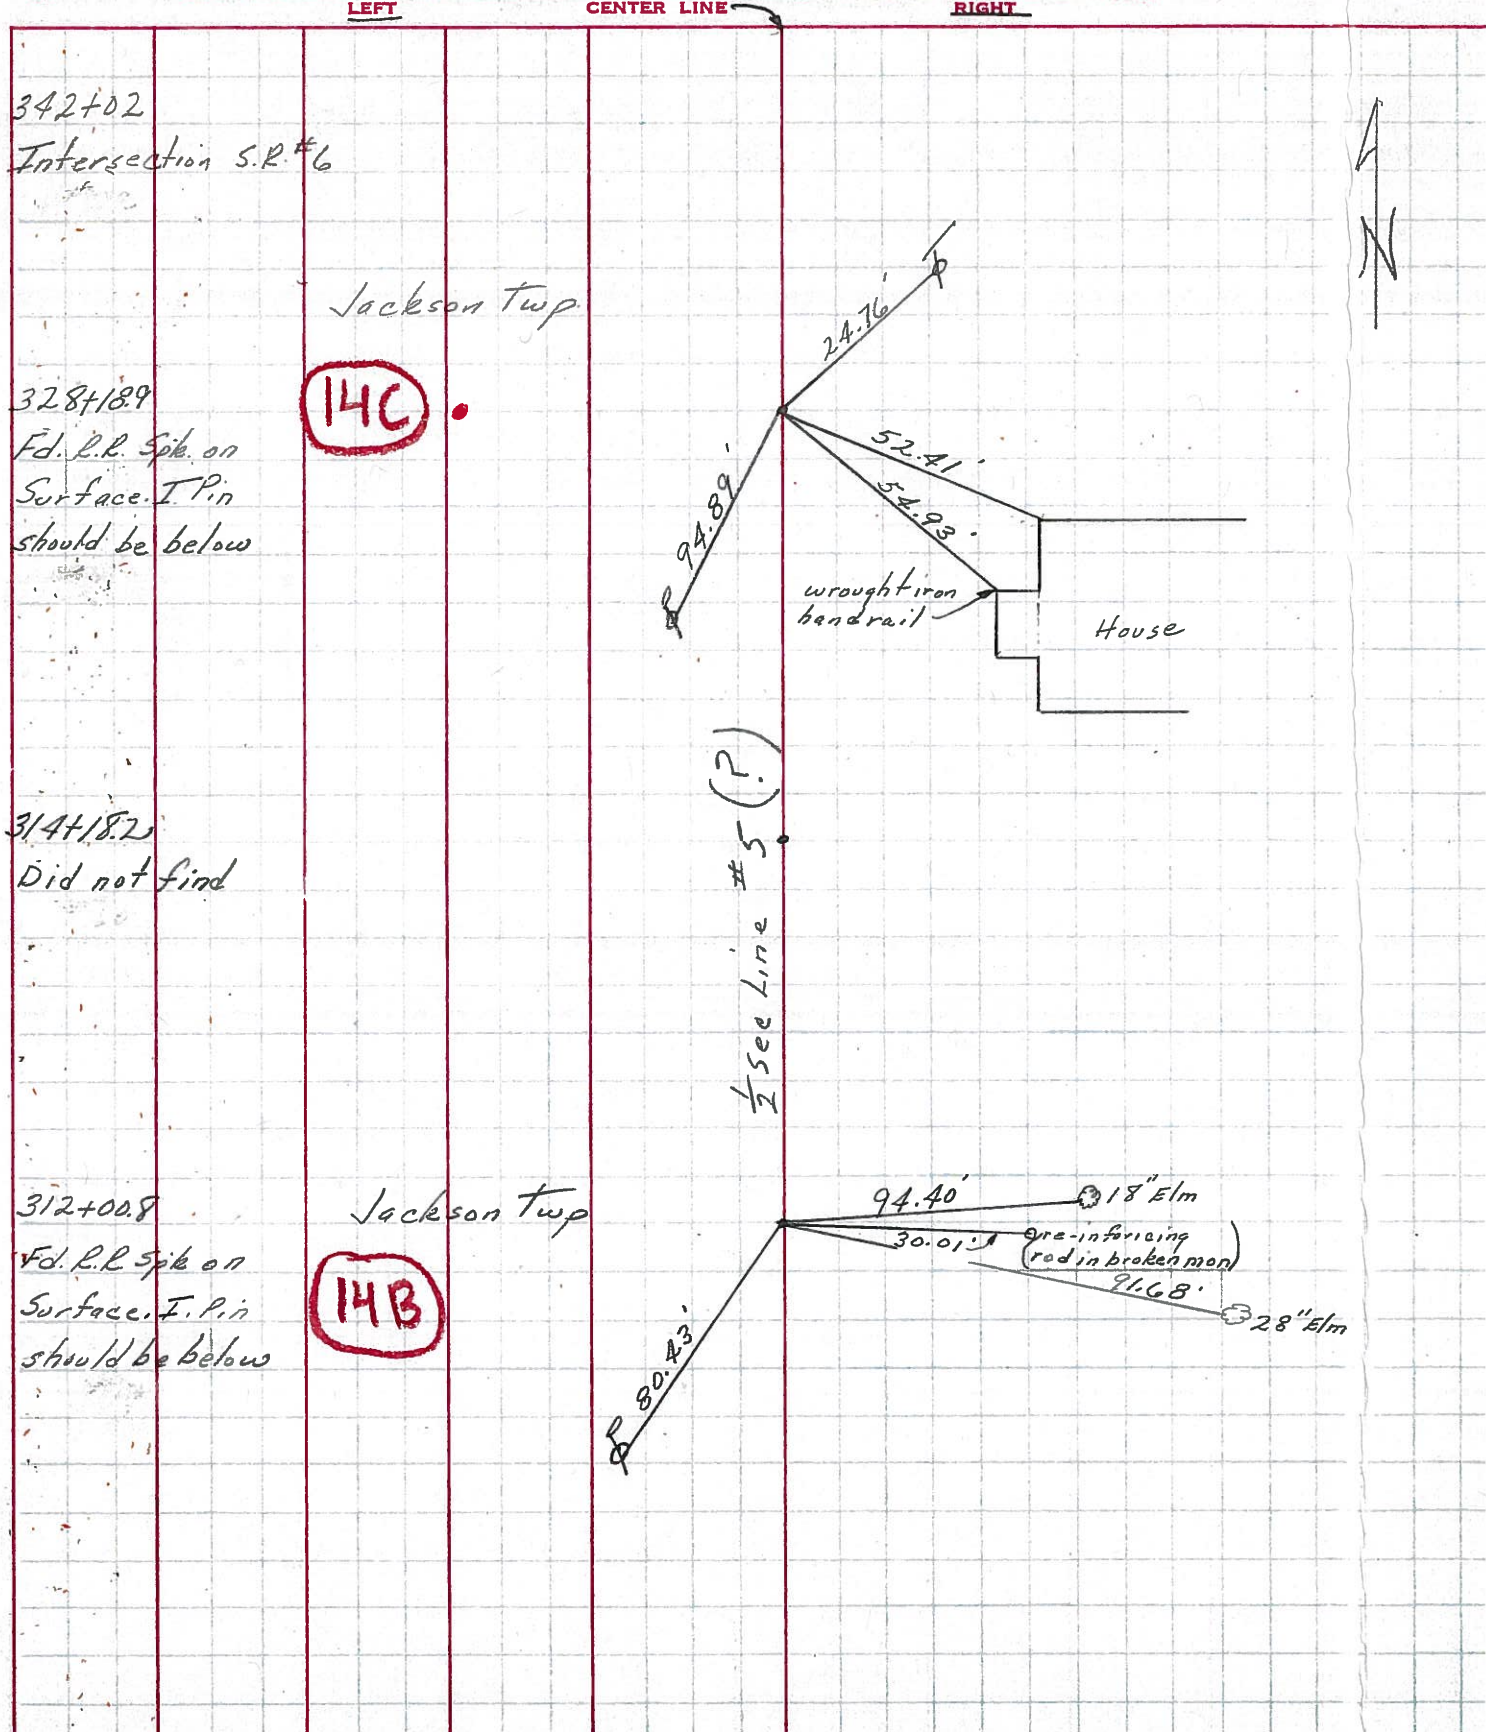 LEFT
CENTER LINE
RIGHT
342+02
Intersection S.R. #6
N
Jackson Twp.
24.76'
328+18.9
Fd. R.R. Spk. on
Surface. I Pin
should be below
14C
94.89'
52.41'
54.93'
wrought iron
handrail
House
314+18.2
Did not find
1/2 Sec Line #5 (?)
312+00.8
Fd. R.R Spk on
Surface. I. Pin
should be below
Jackson Twp
14B
94.40'
18" Elm
30.01'
re-inforicing
(rod in broken mon)
91.68'
28" Elm
80.43'